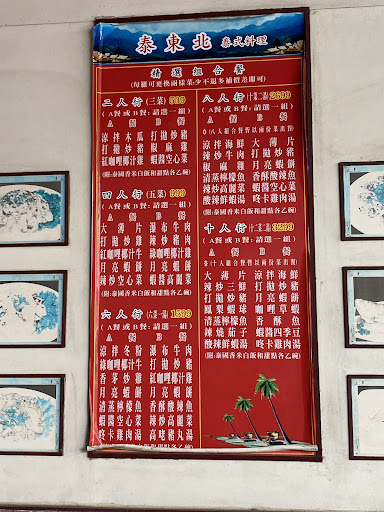 泰東北 泰式料理
精選組合餐
(每組可應換兩樣菜:少不退多補價差即可)
二人行(三菜)599
(A餐或B餐:請選一組)
A餐 B餐
涼拌木瓜 打拋炒豬
打拋炒豬 椒麻雞
紅咖哩椰汁雞 蝦醬空心菜
(附:泰國香米白飯和甜點各乙碗)
四人行(五菜)999
(A餐或B餐:請選一組)
A餐 B餐
大薄片 瀑布牛肉
打拋炒豬 辣炒豬肉
紅咖哩椰汁雞 綠咖哩椰汁雞
月亮蝦餅 月亮蝦餅
蝦醬空心菜 辣炒高麗菜
(附:泰國香米白飯和甜點各乙碗)
六人行(六菜一湯)1599
(A餐或B餐:請選一組)
A餐 B餐
涼拌冬粉 瀑布牛肉
綠咖哩椰汁牛 打拋炒豬
香茅炒雞 紅咖哩椰汁雞
月亮蝦餅 月亮蝦餅
清蒸檸檬魚 香酥酸辣魚
蝦醬空心菜 辣炒高麗菜
咚卡雞肉湯
八人行(十菜一湯)2699
(A餐或B餐:請選一組)
A餐 B餐
涼拌海鮮 大薄片
辣炒牛肉 打拋炒豬
椒麻雞 月亮蝦餅
清蒸檸檬魚 香酥酸辣魚
辣炒高麗菜 蝦醬空心菜
酸辣鮮蝦湯 咚卡雞肉湯
(附:泰國香米白飯和甜點各乙碗)
十人行(十二菜二湯)3299
(A餐或B餐:請選一組)
A餐 B餐
大薄片 涼拌海鮮
辣炒三鮮 打拋炒豬
打拋炒豬 月亮蝦餅
鳳梨蝦球 咖哩草蝦
清蒸檸檬魚 香酥魚
辣燒茄子 蝦醬四季豆
酸辣鮮蝦湯 咚卡雞肉湯
(附:泰國香米白飯和甜點各乙碗)